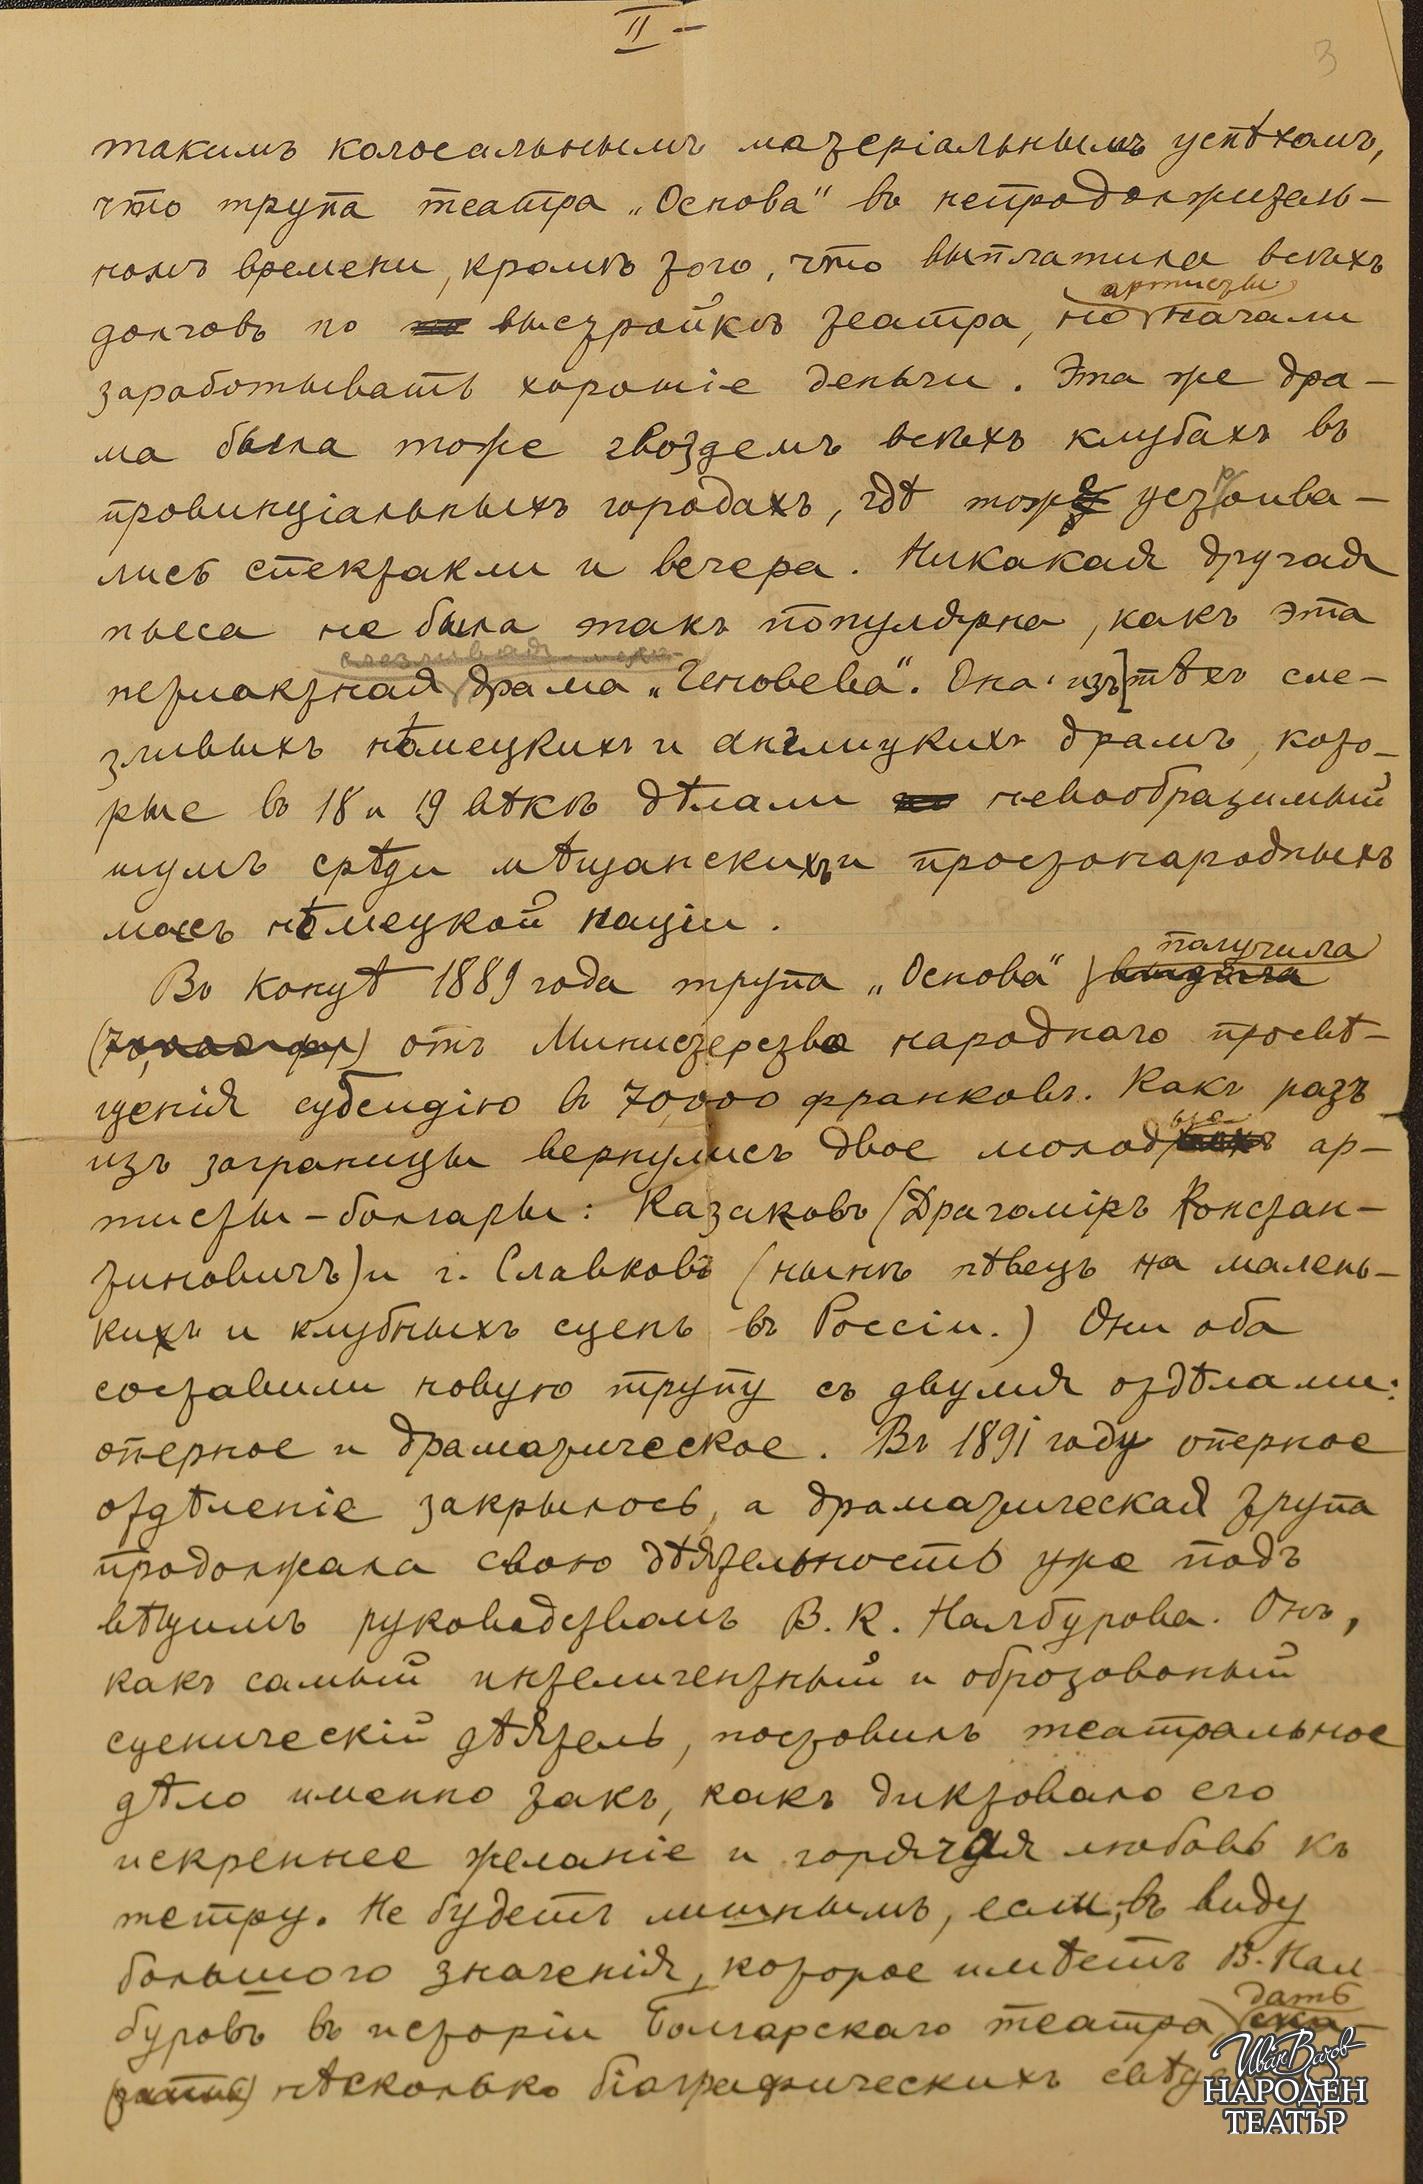 II –
3
такимъ колосальнымъ матеріальнымъ успѣхомъ,
что трупа театра „Основа" въ непродолжитель-
номъ времени, кромѣ того, что выплатила всѣхъ
артисты
долговъ по выстройкѣ театра, но начали
заработывать хорошіе деньги. Эта же дра-
ма была тоже гвоздемъ всѣхъ клубахъ въ
провинціальныхъ городахъ, гдѣ тоже устроива-
лись спектакли и вечера. Никакая другая
пьеса не была такъ популярна, какъ эта
слезливая
пятиактная драма „Геновева". Она изъ тѣхъ сле-
зливыхъ нѣмецкихъ и англицкихъ драмъ, кото-
рые въ 18 и 19 вѣкѣ дѣлали невообразимый
шумъ срѣди мѣщанскихъ и простонародныхъ
масъ нѣмецкой націи.
получила
Въ концѣ 1889 года трупа „Основа"
(70,000 фр) отъ Министерства народнаго просвѣ-
щенія субсидію въ 70,000 франковъ. Какъ разъ
изъ заграницы вернулись двое молодые ар-
тисты-болгары: Казаковъ (Драгоміръ Констан-
тиновичъ) и г. Славковъ (нынѣ пѣвецъ на малень-
кихъ и клубныхъ сценъ въ Россіи.) Они оба
составили новую трупу съ двумя отдѣлами:
оперное и драматическое. Въ 1891 году оперное
отдѣленіе закрылось, а драматическая трупа
продолжала свою дѣятельность уже подъ
вѣщимъ руководствомъ В. К. Налбурова. Онъ,
какъ самый интелигентный и образованый
сценическій дѣятель, поставилъ театральное
дѣло именно такъ, какъ диктовало его
искреннее желаніе и горячая любовь къ
тетру. Не будетъ лишнымъ, если, въ виду
большого значенія, которое имѣетъ В. Нал
дать
буровъ въ исторіи Болгарскаго театра ска-
(зать) нѣсколько біографическихъ свѣд
Иван Вазов
НАРОДЕН
ТЕАТЪР